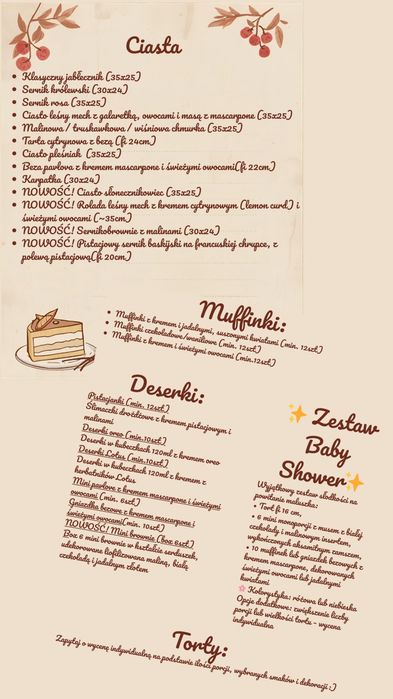 Ciasta
• Klasyczny jabłecznik (35x25)
• Sernik królewski (30x24)
• Sernik rosa (35x25)
• Ciasto leśny mech z galaretką, owocami i masą z mascarpone (35x25)
• Malinowa / truskawkowa / wiśniowa chmurka (35x25)
• Tarta cytrynowa z bezą (fi 24cm)
• Ciasto pleśniak (35x25)
• Beza pavlova z kremem mascarpone i świeżymi owocami(fi 22cm)
• Karpatka (30x24)
• NOWOŚĆ! Ciasto słonecznikowiec (35x25)
• NOWOŚĆ! Rolada leśny mech z kremem cytrynowym (lemon curd) i
świeżymi owocami (~35cm)
• NOWOŚĆ! Sernikobrownie z malinami (30x24)
• NOWOŚĆ! Pistacjowy sernik baskijski na francuskiej chrupce, z
polewą pistacjową(fi 20cm)
Muffinki:
• Muffinki z kremem i jadalnymi, suszonymi kwiatami (min. 12szt)
• Muffinki czekoladowe/waniliowe (min. 12szt)
• Muffinki z kremem i świeżymi owocami (min.12szt)
Deserki:
Pistacjanki (min. 12szt)
Ślimaczki drożdżowe z kremem pistacjowym i
malinami
Deserki oreo (min.10szt)
Deserki w kubeczkach 120ml z kremem oreo
Deserki Lotus (min.10szt)
Deserki w kubeczkach 120ml z kremem z
herbatników Lotus
Mini pavlove z kremem mascarpone i świeżymi
owocami (min. 6szt)
Gniazdka bezowe z kremem mascarpone i
świeżymi owocami(min. 10szt)
NOWOŚĆ! Mini brownie (box 6szt)
Box 6 mini brownie w kształcie serduszek,
udekorowane liofilizowaną maliną, białą
czekoladą i jadalnym złotem
✨ Zestaw
Baby
Shower✨
Wyjątkowy zestaw słodkości na
powitanie maluszka:
• Tort fi 16 cm,
• 6 mini monoporcji z musem z białej
czekolady i malinowym insertem,
wykończonych aksamitnym zamszem,
• 10 muffinek lub gniazdek bezowych z
kremem mascarpone, dekorowanych
świeżymi owocami lub jadalnymi
kwiatami
🌸 Kolorystyka: różowa lub niebieska
Opcje dodatkowe: zwiększenie liczby
porcji lub wielkości tortu – wycena
indywidualna
Torty:
Zapytaj o wycenę indywidualną na podstawie ilości porcji, wybranych smaków i dekoracji ;)